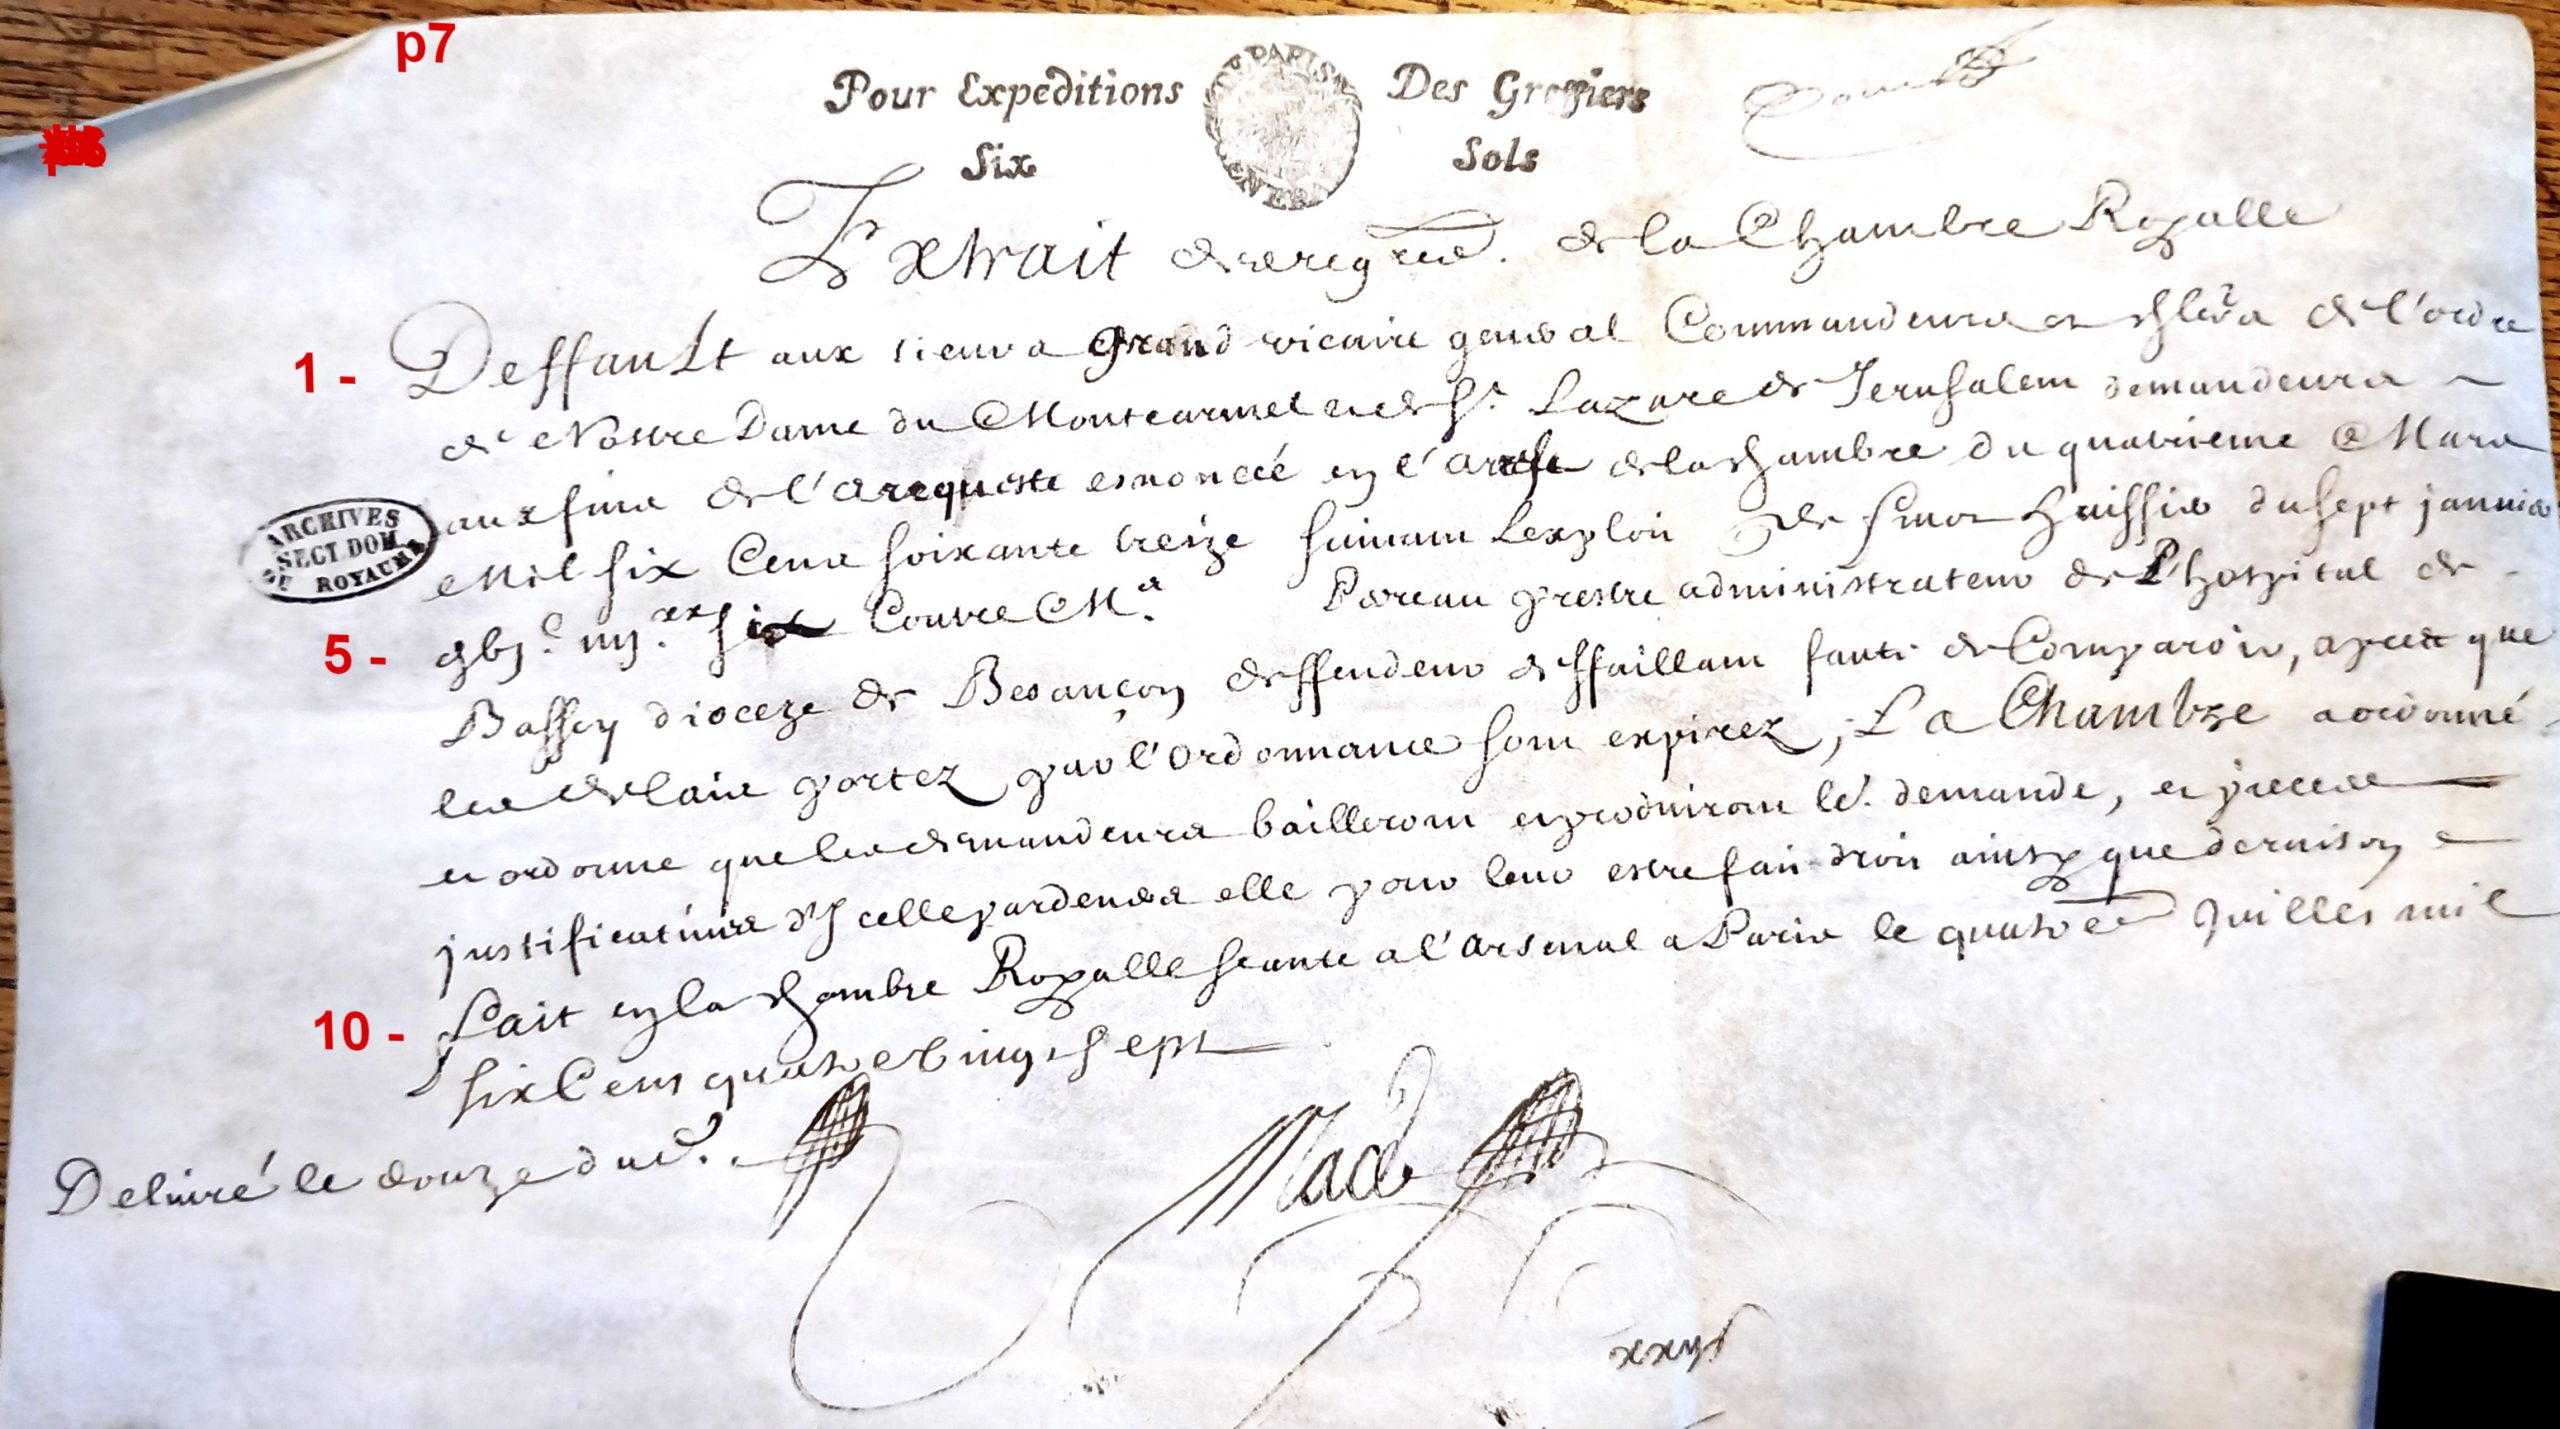 p7
Pour Expeditions Des Greffiers
Six Sols
GEN DE PARIS
Extrait des regres. de la Chambre Royalle
1 - Deffault aux sieurs Grand vicaire general Commandeurs et chlers de l'ordre
de Nostre Dame du Montcarmel et de St. Lazare de Jerusalem demandeurs
aux fins de l'a requeste ennoncéé en l'arrest de la chambre du quatrieme Mars
ARCHIVES SECT DOM. DU ROYAUME
Mil six Cens soixante treize suivant Lexploit de huissier du sept janvier
5 - gbjc. iiij.xx six Contre Me. prestre administrateur de L'hospital de
Bassey dioceze de Besançon deffendeur deffaillant faute de Comparoir, apres que
les delais portez par l'ordonnance sont expirez, La Chambre a ordonné
et ordonne que les demandeurs bailleront et produiront led. demande, et pieces
justificatives d'Icelle pardevers elle pour leur estre fait droit ainsy que de raison
10 - Fait en la chambre Royalle seante a l'arsenal a Paris le quatre Juillet mil
six Cens quatre vingt sept
Delivré le douze dud.
Macé